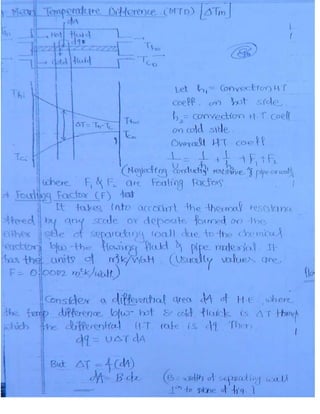 Mean Temperature Difference (MTD) | ΔTm
dA
Thi
Hot fluid
Tho
dq
Cold fluid
Thi
ΔT = Th - Tc
Tho
Tco
Tci
Let h₁ = Convection HT
coeff. on hot side
h₂ = convection H T coeff
on cold side
Overall HT coeff
1/U = 1/h₁ + 1/h₂ + F₁ + F₂
(Neglecting conductive resistance of pipe or wall)
where F₁ & F₂ are Fouling Factors
* Fouling Factor (F)
It takes into account the thermal resistance
offered by any scale or deposite formed on the
either side of separating wall due to the chemical
reaction b/w the flowing fluid & pipe material. It
has the units of m²k/watt. (Usually values are
F = 0.0002 m²k/watt)
Consider a differential area dA of H.E. where
the temp difference b/w hot & cold fluids is ΔT through
which the differential H.T rate is dq Then,
dq = U ΔT dA
But ΔT = f(dA)
dA = B dx
(B = width of separating wall